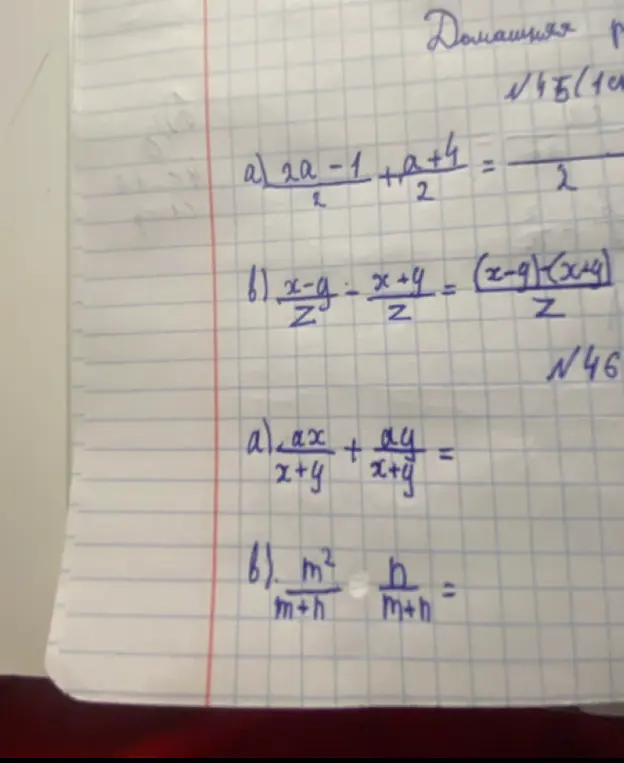 Домашняя
№45(1
а) (2a-1)/2 + (a+4)/2 = /2
в) (x-y)/z - (x+y)/z = ((x-y)-(x+y))/z
№46
а) ax/(x+y) + ay/(x+y) =
в) m²/(m+n) n/(m+n) =